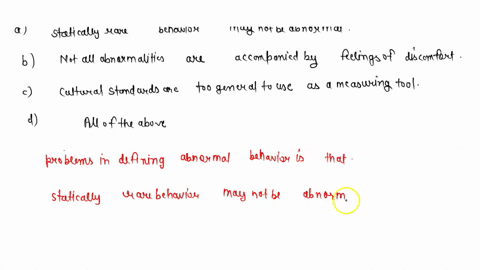 a) statically rare behavior may not be abnormal.
b) Not all abnormalities are accomponied by feelings of discomfort.
c) Cultural standards are too general to use as a measuring tool.
d) All of the above
problems in defining abnormal behavior is that.
statically rare behavior may not be abnorm